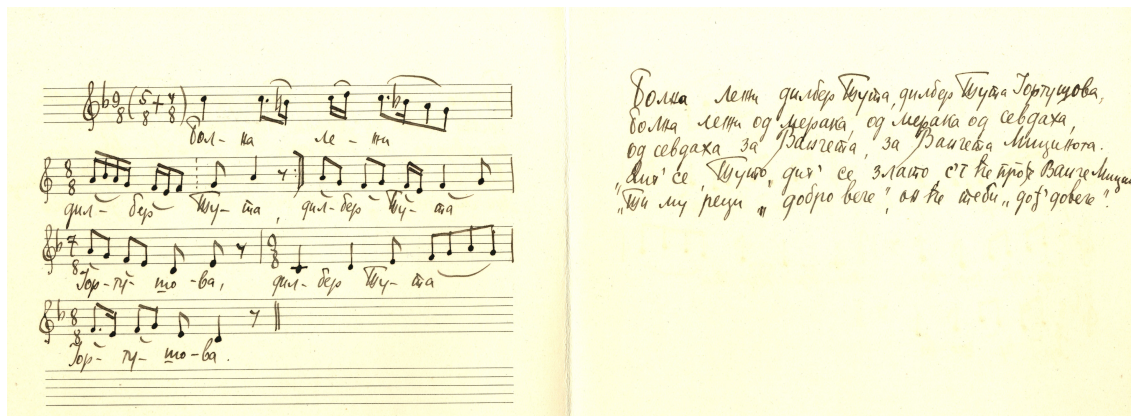 9/8 (5/8 + 4/8)
Бол- на ле- жи
8/8
дил- бер Ту- та, дил- бер Ту- та
7/8 9/8
Јор- гу- шо- ва, дил- бер Ту- та
8/8
Јор- гу- шо- ва.
Болна лежи дилбер Тута, дилбер Тута Јоргушова,
болна лежи од мерака, од мерака од севдаха,
од севдаха за Ванчета, за Ванчета Мицинога.
„Диг' се, Туто, диг' се, злато ће Ванче
„Ти му реци „добро вече", он ће теби „дођ' довече".